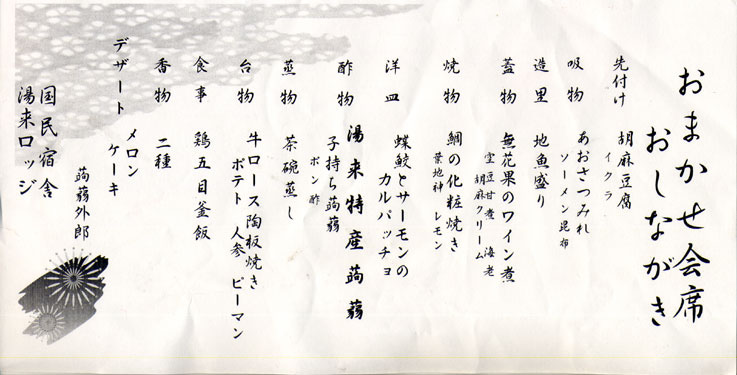 おまかせ会席
おしながき
先付け 胡麻豆腐
イクラ
吸物 あおさつみれ
ソーメン昆布
造里 地魚盛り
蓋物 無花果のワイン煮
空豆甘煮 海老
胡麻クリーム
焼物 鯛の化粧焼き
葉地神 レモン
洋皿 蝶鮫とサーモンの
カルパッチョ
湯来特産蒟蒻
酢物 子持ち蒟蒻
ポン酢
蒸物 茶碗蒸し
台物 牛ロース陶板焼き
ポテト 人参 ピーマン
食事 鶏五目釜飯
香物 二種
デザート メロン
ケーキ
蒟蒻外郎
国民宿舎
湯来ロッジ